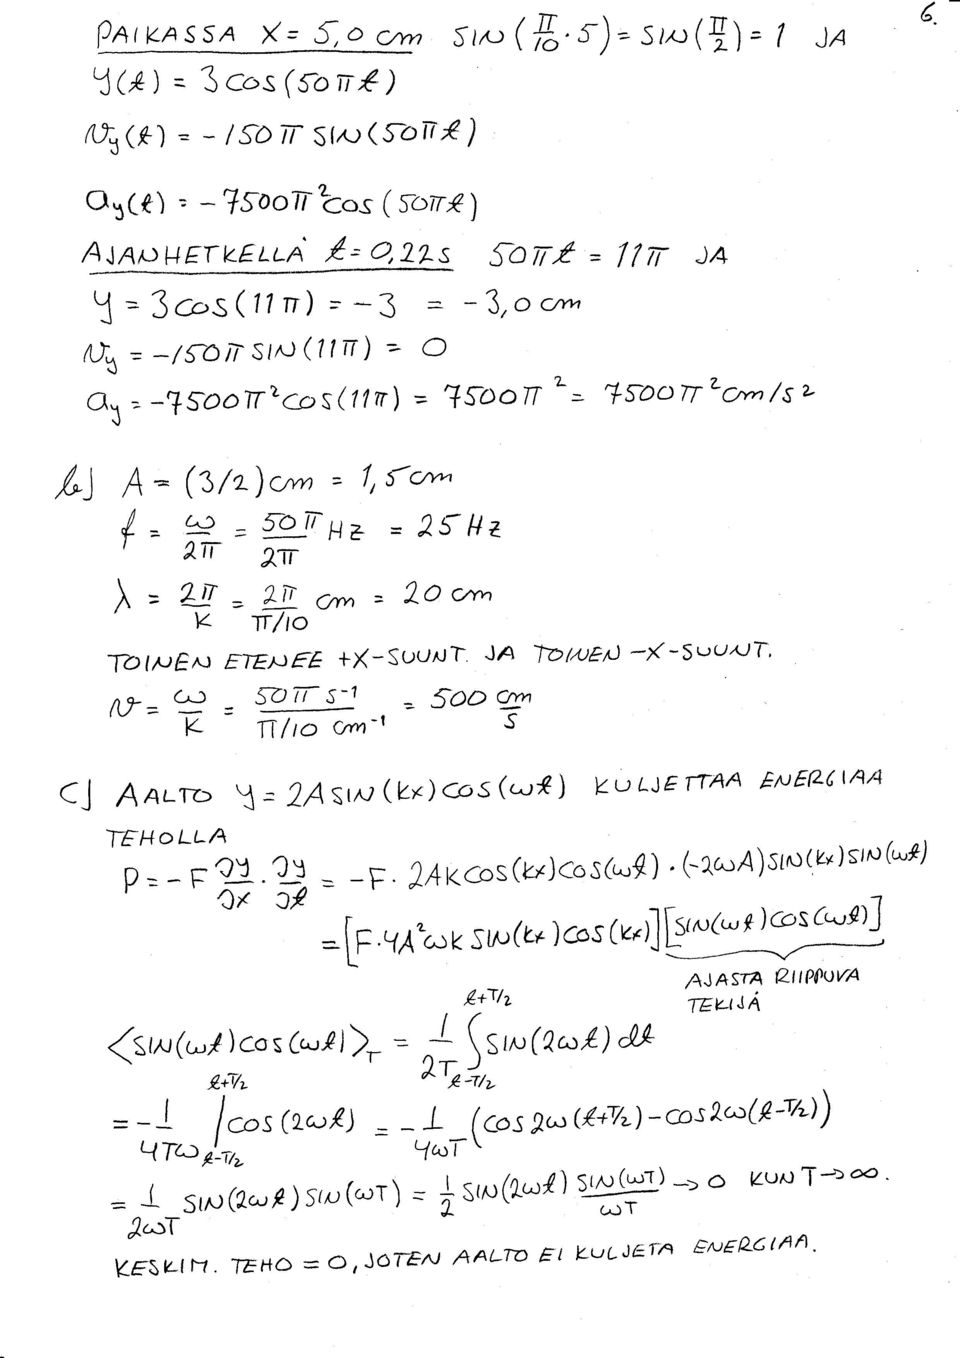 6.
PAIKASSA X = 5,0 cm SIN(π/10 · 5) = SIN(π/2) = 1 JA
y(t) = 3 cos(50πt)
v_y(t) = -150π SIN(50πt)
a_y(t) = -7500π² cos(50πt)
AJANHETKELLÄ t = 0,22s 50πt = 11π JA
y = 3cos(11π) = -3 = -3,0 cm
v_y = -150π SIN(11π) = 0
a_y = -7500π² cos(11π) = 7500π² = 7500π² cm/s²
b] A = (3/2)cm = 1,5 cm
f = ω/2π = 50π/2π Hz = 25 Hz
λ = 2π/k = 2π/(π/10) cm = 20 cm
TOINEN ETENEE +X-SUUNT. JA TOINEN -X-SUUNT.
v = ω/k = 50π s⁻¹/(π/10 cm⁻¹) = 500 cm/s
C] AALTO y = 2A SIN(kx)COS(ωt) KULJETTAA ENERGIAA
TEHOLLA
P = -F ∂y/∂x · ∂y/∂t = -F · 2Ak COS(kx)COS(ωt) · (-2ωA)SIN(kx)SIN(ωt)
= [F·4A²ωk SIN(kx)COS(kx)][SIN(ωt)COS(ωt)]
AJASTA RIIPPUVA
TEKIJÄ
<SIN(ωt)COS(ωt)>_T = 1/2T ∫_{t-T/2}^{t+T/2} SIN(2ωt) dt
= -1/4Tω |_{t-T/2}^{t+T/2} cos(2ωt) = -1/4ωT (cos2ω(t+T/2) - cos2ω(t-T/2))
= 1/2ωT SIN(2ωt)SIN(ωT) = 1/2 SIN(2ωt) SIN(ωT)/ωT → 0 KUN T→∞.
KESKIM. TEHO = 0, JOTEN AALTO EI KULJETA ENERGIAA.